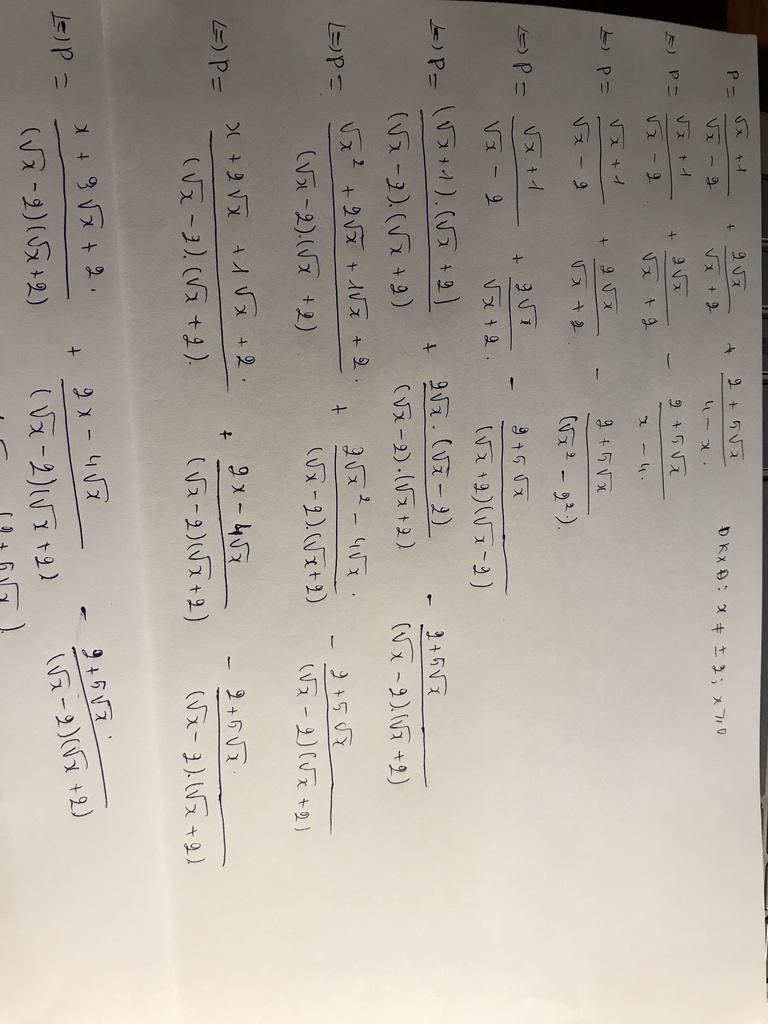 P = (√x + 1)/(√x - 2) + 2√x/(√x + 2) + (2 + 5√x)/(4 - x). ĐKXĐ: x ≠ ± 2; x ≥ 0
(=) P = (√x + 1)/(√x - 2) + 2√x/(√x + 2) - (2 + 5√x)/(x - 4.)
(=) P = (√x + 1)/(√x - 2) + 2√x/(√x + 2.) - (2 + 5√x)/(√x² - 2²).
(=) P = (√x + 1)/(√x - 2) + 2√x/(√x + 2.) - (2 + 5√x)/((√x + 2)(√x - 2))
(=) P = ((√x + 1).(√x + 2))/((√x - 2).(√x + 2)) + (2√x.(√x - 2))/((√x - 2).(√x + 2)) - (2 + 5√x)/((√x - 2).(√x + 2))
(=) P = (√x² + 2√x + 1√x + 2.)/((√x - 2).(√x + 2)) + (2√x² - 4√x.)/((√x - 2).(√x + 2)) - (2 + 5√x)/((√x - 2)(√x + 2))
(=) P = (x + 2√x + 1√x + 2.)/((√x - 2).(√x + 2).) + (2x - 4√x)/((√x - 2)(√x + 2)) - (2 + 5√x.)/((√x - 2).(√x + 2))
(=) P = (x + 3√x + 2.)/((√x - 2)(√x + 2)) + (2x - 4√x)/((√x - 2)(√x + 2)) - (2 + 5√x.)/((√x - 2)(√x + 2))
(2 + 5√x).